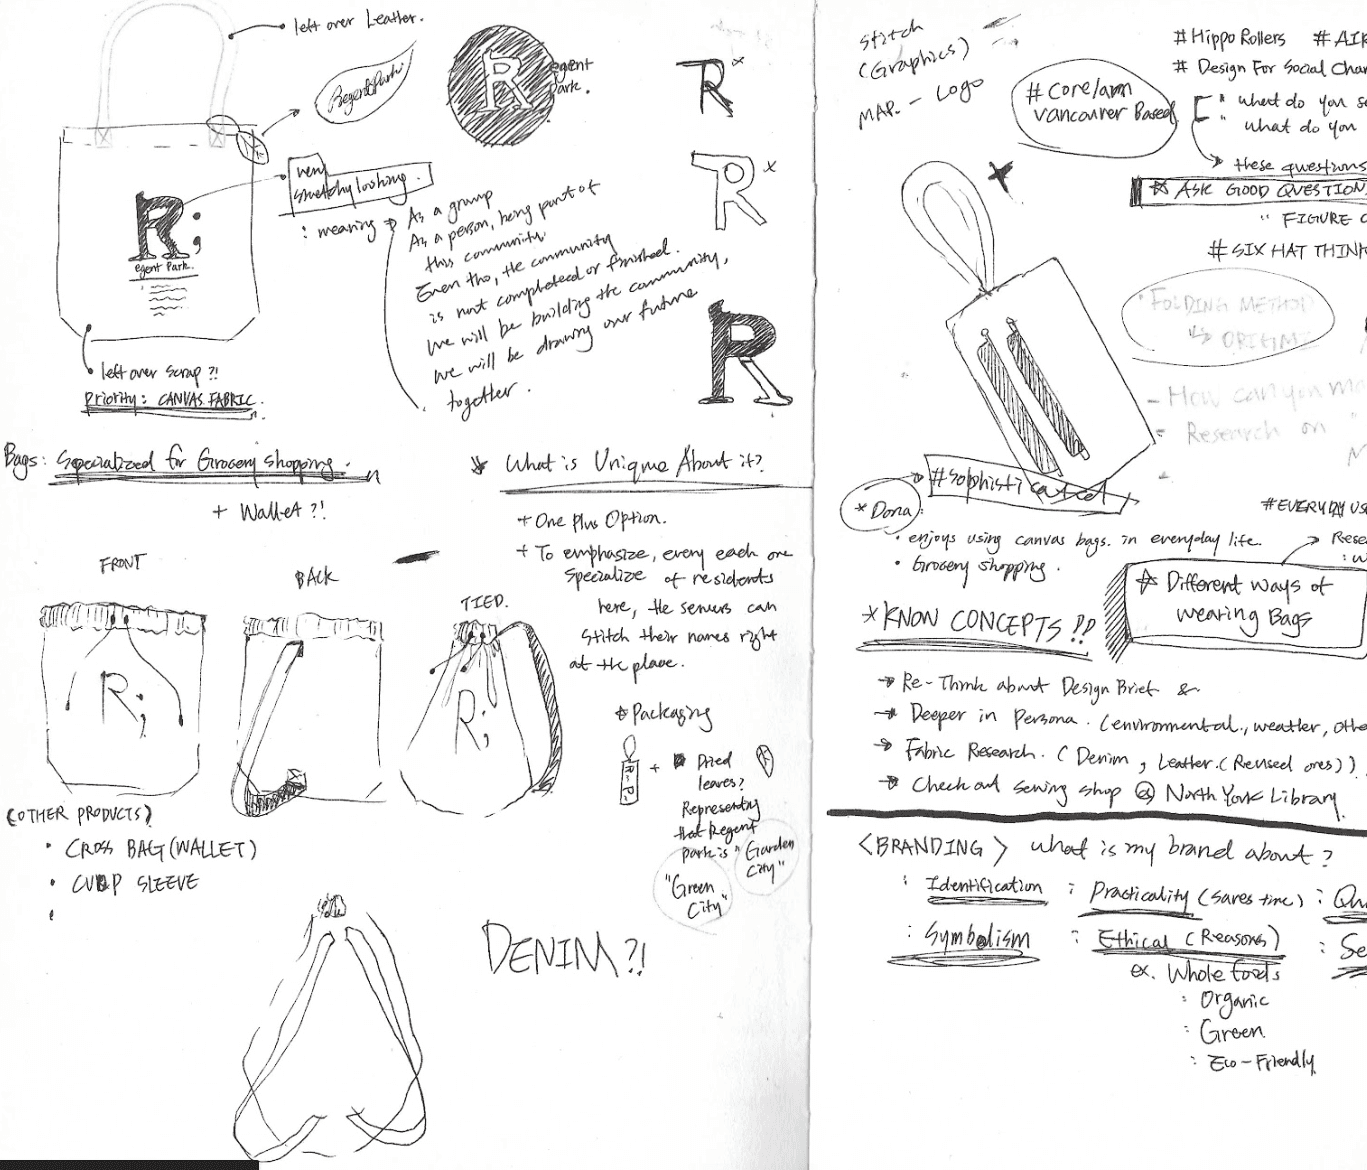 left over Leather.
Regent Park
R
egent
Park.
R
x
R
x
R
very
sketchy looking.
: meaning →
As a group
As a person, being part of
this community.
Even tho, the community
is not completed or finished.
We will be building the community,
we will be drawing our future
together.
R;
egent Park.
left over scrap ?!
Priority: CANVAS FABRIC.
Bags: Specialized for Grocery shopping.
+ Wallet ?!
FRONT
BACK
TIED.
R;
R;
(OTHER PRODUCTS)
• CROSS BAG (WALLET)
• CUP SLEEVE
•
What is Unique About it?
+ One Plus Option.
+ To emphasize, every each one
specialize of residents
here, the sewers can
stitch their names right
at the place.
* Packaging
R=P.
+
Dried
leaves?
Representing
that Regent
park is "Garden
City"
"Green
City"
DENIM?!
Stitch
(Graphics)
MAP. - Logo
# Core/arm
Vancouver Based
# Hippo Rollers # AIR
# Design For Social Chan
" what do you se
" what do you
these questions
☆ ASK GOOD QUESTION
" FIGURE O
# SIX HAT THINK
• FOLDING METHOD
↳ ORIGAMI
- How can you ma
- Research on "
# Sophisticated
* Dona:
• enjoys using canvas bags. in everyday life.
• Grocery shopping.
# EVERYDAY US
Rese
: w
☆ Different ways of
wearing Bags
* KNOW CONCEPTS !!
→ Re-Think about Design Brief &
→ Deeper in Persona. (environmental., weather, othe
→ Fabric Research. ( Denim, Leather. (Reused ones))
→ Check out Sewing shop @ North York Library.
<BRANDING> what is my brand about?
: Identification
: Practicality (saves time)
: Qu
: Symbolism
: Ethical (Reasons)
: Se
ex. Whole foods
: Organic
: Green
: Eco-Friendly